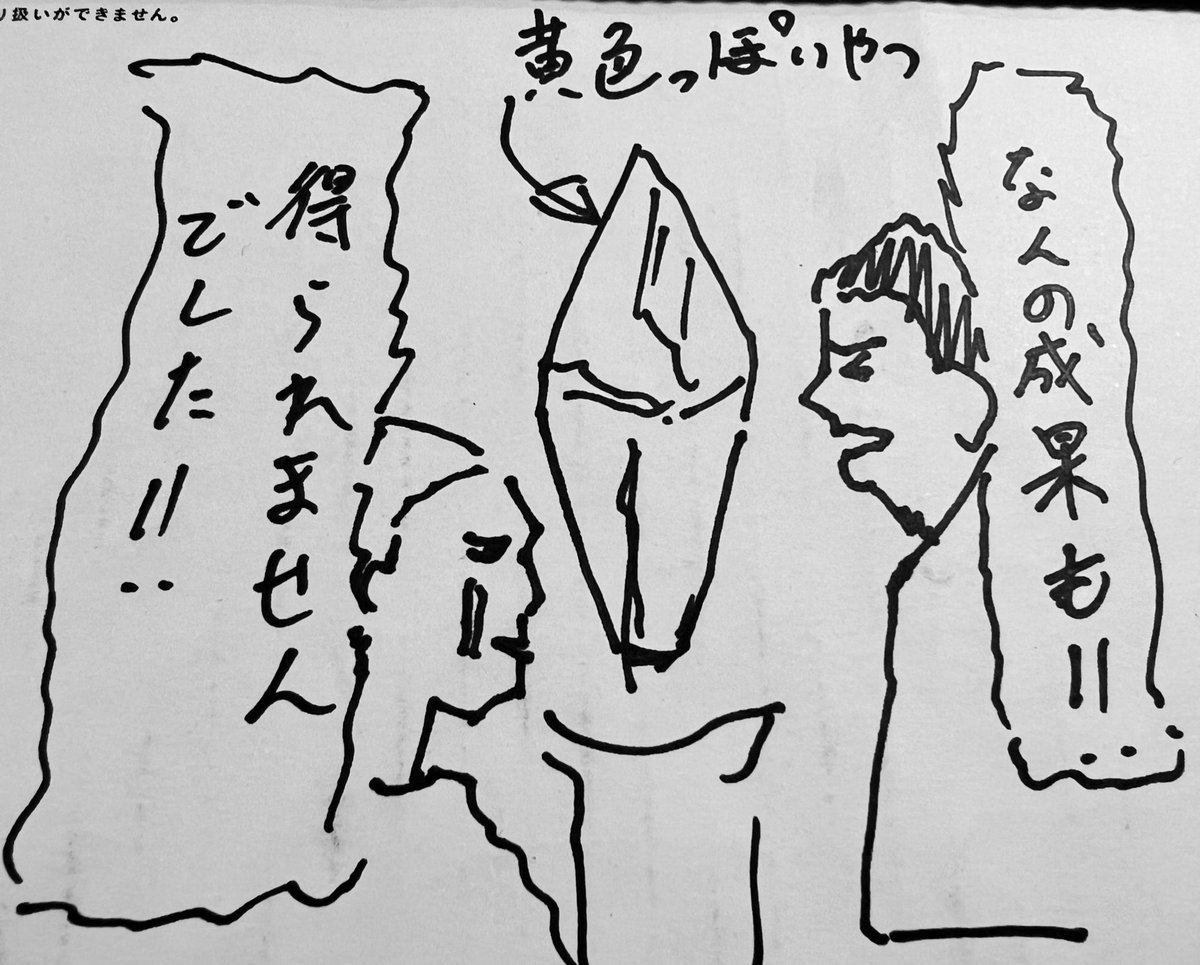 り扱いができません。
黄色っぽいやつ
なんの成果も!!
得られません
でした!!